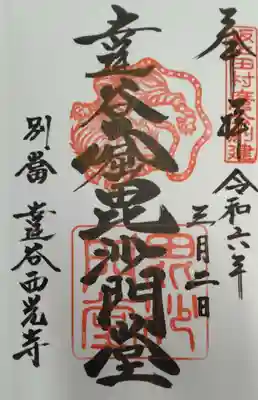 奉拝
令和六年
三月二日
達谷窟毘沙門堂
別當 達谷西光寺